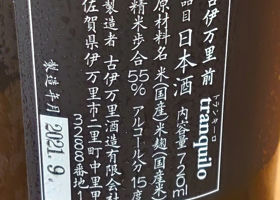 古伊万里 前
トランキーロ
tranquilo
品目 日本酒 内容量720ml
原材料名 米(国産)米麹(国産米)
精米歩合55% アルコール分15度
製造者 古伊万里酒造有限会
佐賀県伊万里市二里町中里甲
3288番地1
製造年月 2021.9.